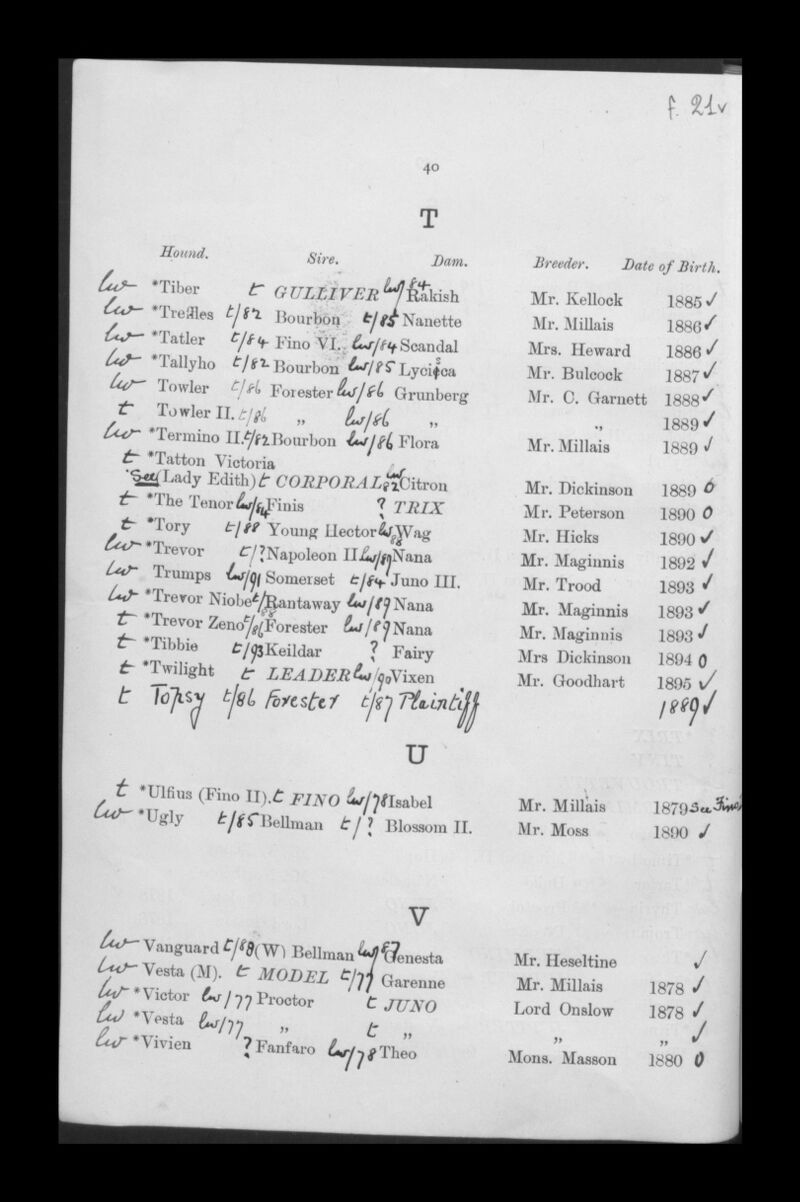 f. 21v
40
T
Hound. Sire. Dam. Breeder. Date of Birth.
lw *Tiber t GULLIVER lw/84 Rakish Mr. Kellock 1885 ✓
lw *Treffles t/82 Bourbon t/85 Nanette Mr. Millais 1886 ✓
lw *Tatler t/84 Fino VI. lw/84 Scandal Mrs. Heward 1886 ✓
lw *Tallyho t/82 Bourbon lw/85 Lycisca Mr. Bulcock 1887 ✓
lw Towler t/86 Forester lw/86 Grunberg Mr. C. Garnett 1888 ✓
t Towler II. t/86 „ lw/86 „ „ 1889 ✓
lw *Termino II. t/82 Bourbon lw/86 Flora Mr. Millais 1889 ✓
t *Tatton Victoria
See (Lady Edith) t CORPORAL lw/82 Citron Mr. Dickinson 1889 0
t *The Tenor lw/84 Finis ? TRIX Mr. Peterson 1890 0
t *Tory t/88 Young Hector lw/88 Wag Mr. Hicks 1890 ✓
lw *Trevor t/? Napoleon II lw/89 Nana Mr. Maginnis 1892 ✓
lw Trumps lw/91 Somerset t/84 Juno III. Mr. Trood 1893 ✓
lw *Trevor Niobe t/88 Rantaway lw/89 Nana Mr. Maginnis 1893 ✓
t *Trevor Zeno t/86 Forester lw/89 Nana Mr. Maginnis 1893 ✓
t *Tibbie t/93 Keildar ? Fairy Mrs Dickinson 1894 0
t *Twilight t LEADER lw/90 Vixen Mr. Goodhart 1895 ✓
t Topsy t/86 Forester t/87 Plaintiff 1889 ✓
U
t *Ulfius (Fino II). t FINO lw/78 Isabel Mr. Millais 1879 See Fino
lw *Ugly t/85 Bellman t/? Blossom II. Mr. Moss 1890 ✓
V
lw Vanguard t/88 (W) Bellman lw/87 Genesta Mr. Heseltine ✓
lw Vesta (M). t MODEL t/77 Garenne Mr. Millais 1878 ✓
lw *Victor lw/77 Proctor t JUNO Lord Onslow 1878 ✓
lw *Vesta lw/77 „ t „ „ „ ✓
lw *Vivien ? Fanfaro lw/78 Theo Mons. Masson 1880 0